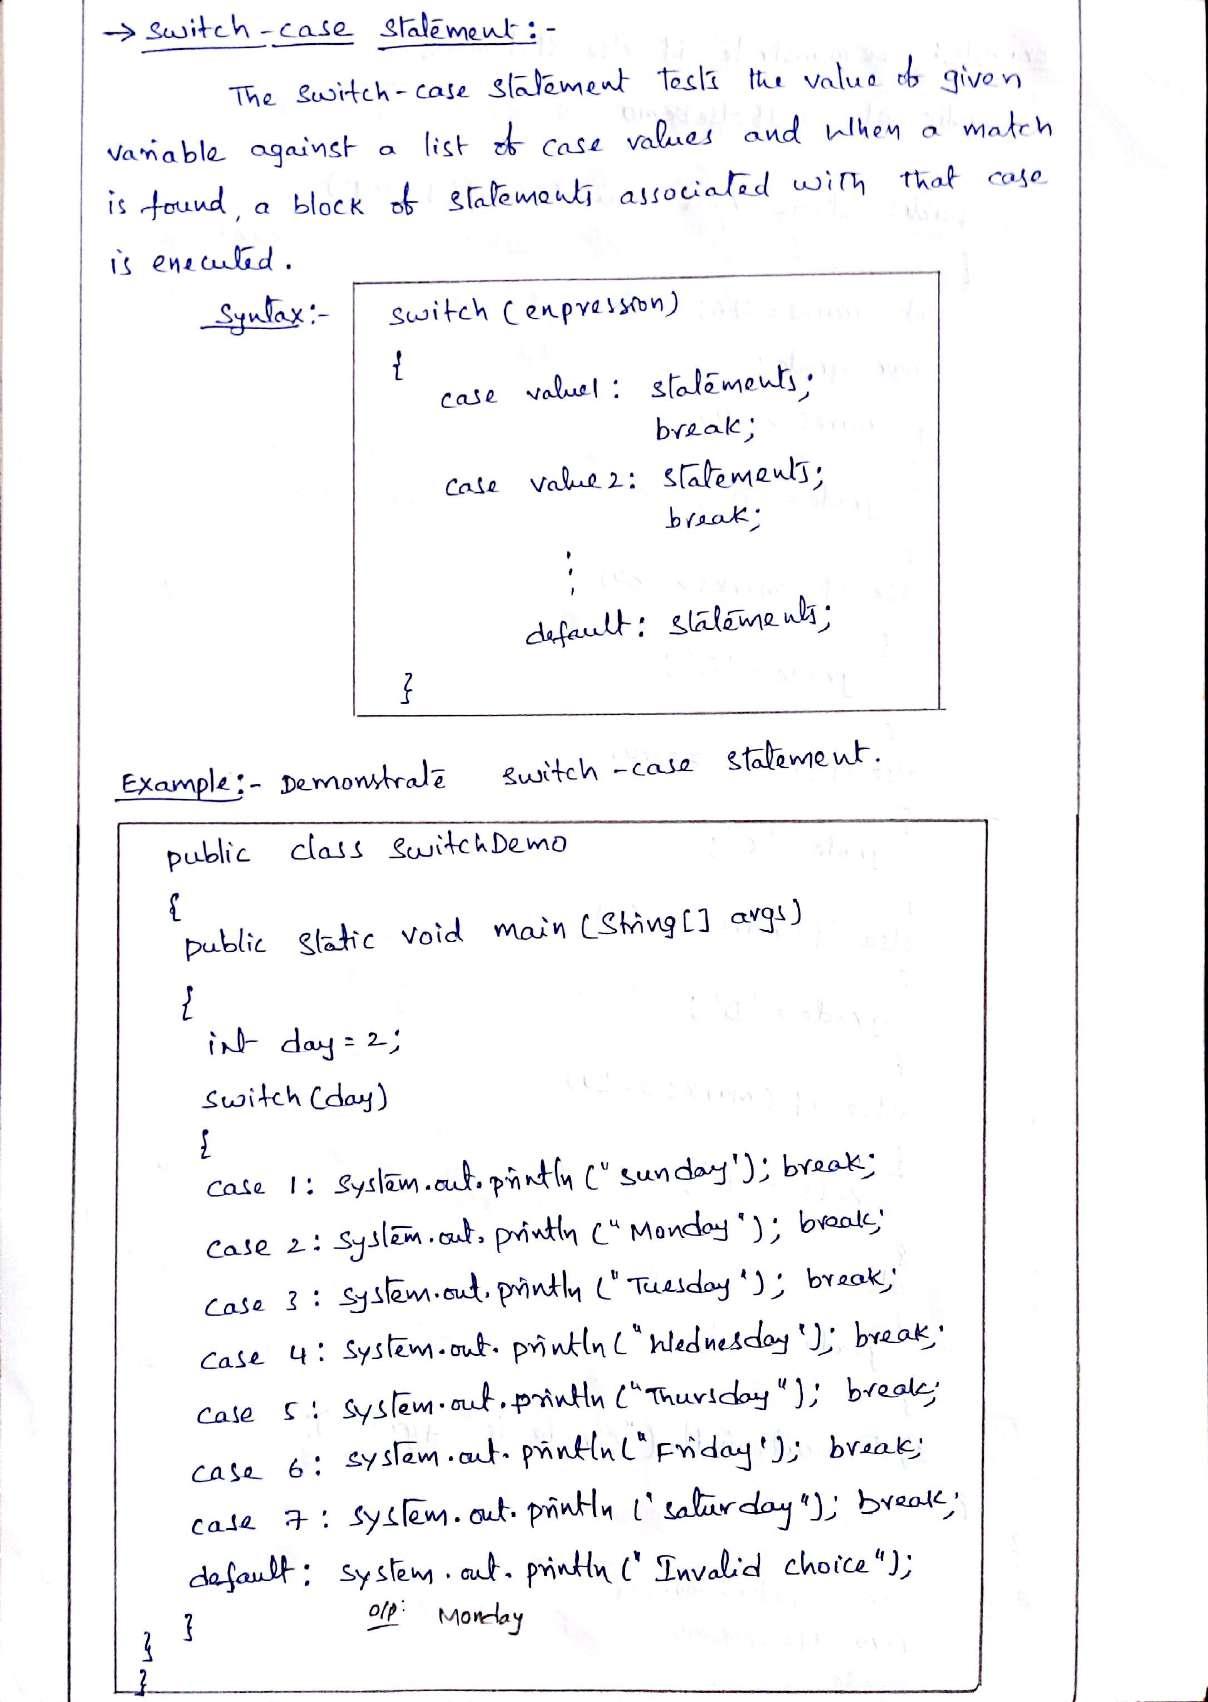 → Switch-case statement :-
The switch-case statement tests the value of given
variable against a list of case values and when a match
is found, a block of statements associated with that case
is executed.
Syntax:-
switch (expression)
{
case value1 : statements;
break;
case value 2: statements;
break;
⋮
default: statements;
}
Example:- Demonstrate switch-case statement.
public class SwitchDemo
{
public static void main (String[] args)
{
int day = 2;
switch (day)
{
case 1: System.out.println ("Sunday"); break;
case 2: System.out.println ("Monday"); break;
case 3: System.out.println ("Tuesday"); break;
case 4: System.out.println ("Wednesday"); break;
case 5: System.out.println ("Thursday"); break;
case 6: System.out.println ("Friday"); break;
case 7: System.out.println ("Saturday"); break;
default: System.out.println ("Invalid choice");
} o/p: Monday
}
}